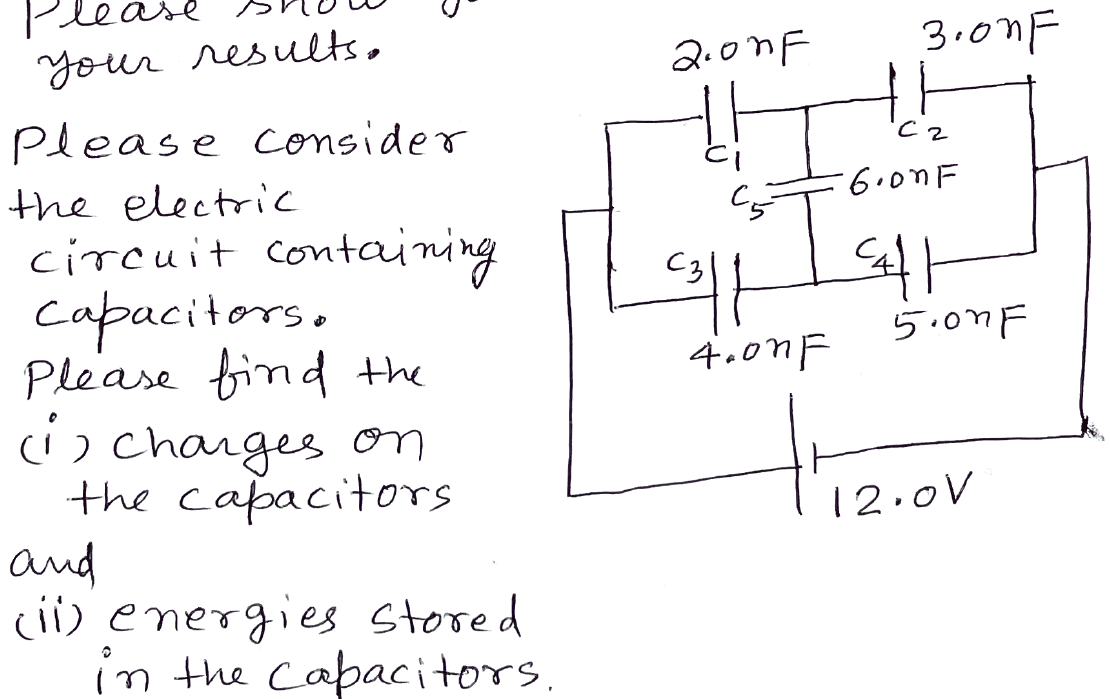 Please show
your results.
Please consider
the electric
circuit containing
capacitors.
Please find the
(i) charges on
the capacitors
and
(ii) energies stored
in the capacitors.
2.0nF
3.0nF
C1
C2
C5
6.0nF
C3
C4
4.0nF
5.0nF
12.0V